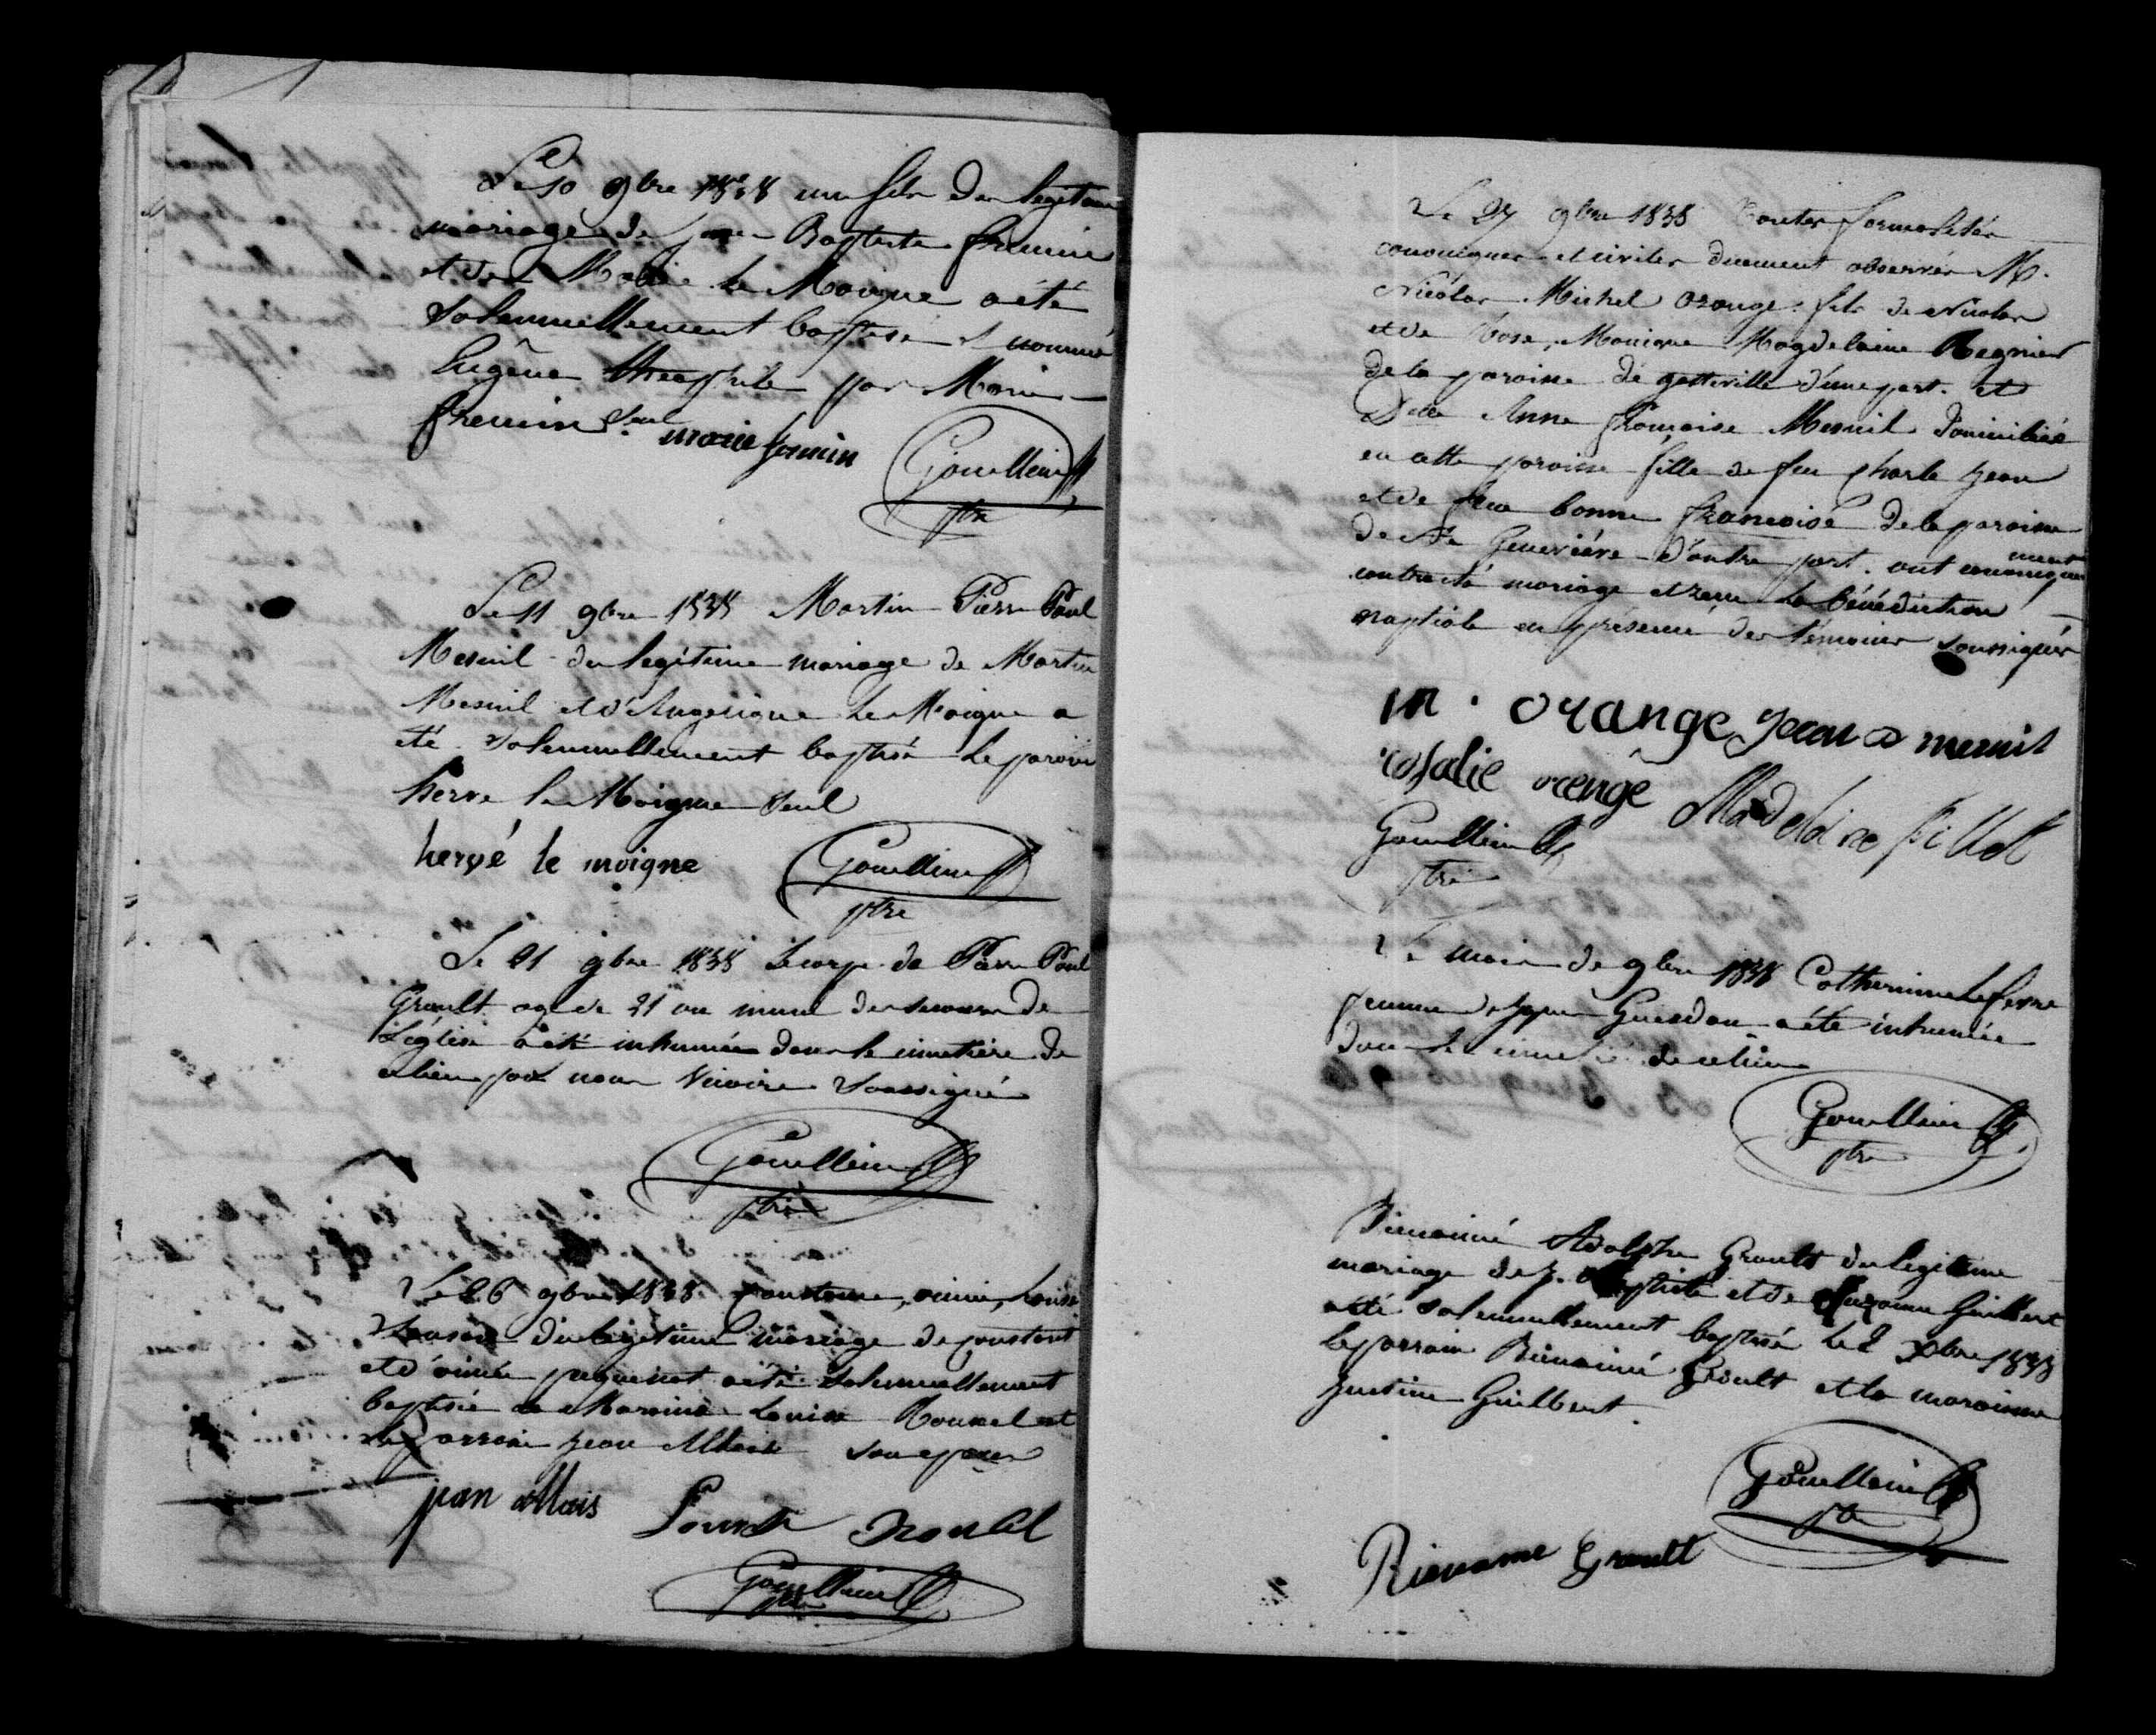 Le 10 9bre 1838 un fils du legitime
mariage de Jean Baptiste fremin
et de Marie le Moigne a été
solennellement baptisé et nommé
Eugène théophile par Marie
fremin seul
marie fremin Gouellain
ptre
Le 11 9bre 1838 Martin Pierre Paul
Mesnil du legitime mariage de Martin
Mesnil et d'Angelique le Moigne a
été solennellement baptisé le parain
herve le Moigne seul
hervé le moigne Gouellain
ptre
Le 21 9bre 1838 Le corps de Pierre Paul
Grault agé de 21 an muni des secours de
L'église a été inhumée dans le cimetière de
ce lieu par nous Vicaire soussigné
Gouellain
ptre
Le 26 9bre 1838 aimée Louise
du legitime mariage de constant
et d'aimée a été solennellement
baptisée la Maraine Louise Rouxel et
le parrain jean Allais son epoux
jean allais Louise Rouxel
Gouellain
ptre
Le 27 9bre 1838 toutes formalités
canoniques et civiles duement observées M.
Nicolas Michel orange fils de Nicolas
et de Rose, Monique Magdelaine Regnier
de la paroisse de gatteville d'une part. et
Delle Anne françoise Mesnil domiciliée
en cette paroisse fille de feu Charle jean
et de feue bonne françoise de la paroisse
de Ste Geneviève d'autre part. ont canoniquement
contracté mariage et reçu la bénédiction
nuptiale en présence des témoins soussignés
m. orange jean mesnil
rosalie orenge Madelaine fillot
Gouellain
ptre
Le mois de 9bre 1838 Catherinne Lefevre
femme de Jaque Guesdon a été inhumée
dans le cimetiè de ce lieu
Gouellain
ptre
Bienaimé Adolphe Grault du legitime
mariage de j. Baptiste et de Suzanne Guilbert
a été solennellement baptisé le 2 Xbre 1838
le parrain Bienaimé Grault et la maraine
justine Guilbert.
Gouellain
ptre
Bienaime Grault